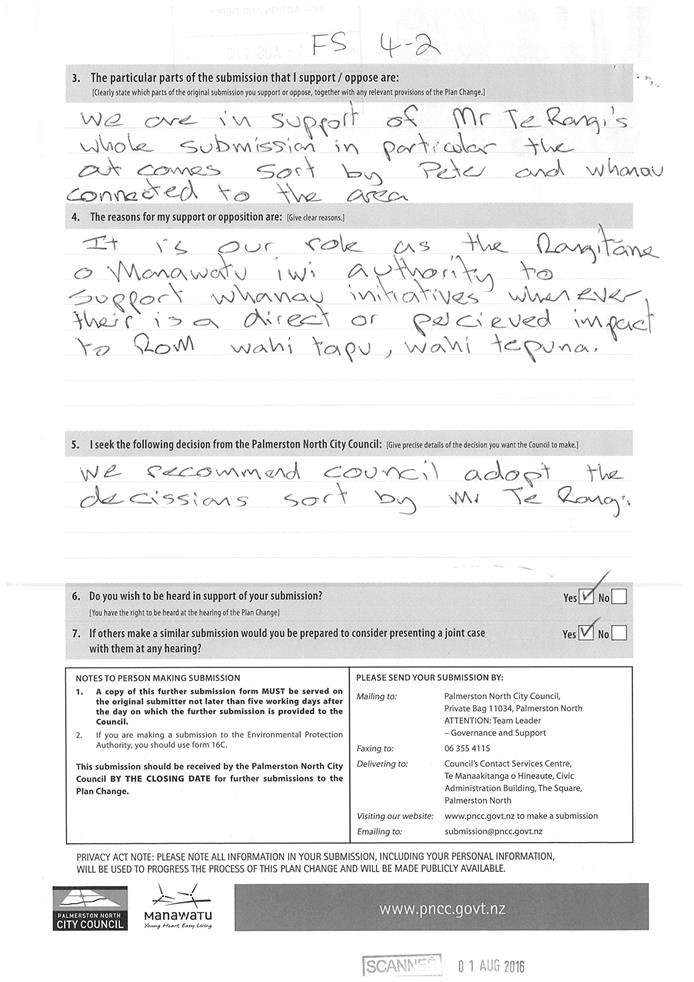 FS 4-2
3. The particular parts of the submission that I support / oppose are:
[Clearly state which parts of the original submission you support or oppose, together with any relevant provisions of the Plan Change.]
We are in support of Mr Te Rangi's
whole submission in particular the
out comes sort by Peter and whanau
connected to the area
4. The reasons for my support or opposition are: [Give clear reasons.]
It is our role as the Rangitāne
o Manawatu iwi authority to
support whanau initiatives whenever
their is a direct or percieved impact
to ROM wahi tapu, wahi tepuna.
5. I seek the following decision from the Palmerston North City Council: [Give precise details of the decision you want the Council to make.]
We recommend council adopt the
decissians sort by Mr Te Rangi.
6. Do you wish to be heard in support of your submission?
Yes ✓ No
[You have the right to be heard at the hearing of the Plan Change]
7. If others make a similar submission would you be prepared to consider presenting a joint case
Yes ✓ No
with them at any hearing?
NOTES TO PERSON MAKING SUBMISSION
1. A copy of this further submission form MUST be served on
the original submitter not later than five working days after
the day on which the further submission is provided to the
Council.
2. If you are making a submission to the Environmental Protection
Authority, you should use form 16C.
This submission should be received by the Palmerston North City
Council BY THE CLOSING DATE for further submissions to the
Plan Change.
PLEASE SEND YOUR SUBMISSION BY:
Mailing to: Palmerston North City Council,
Private Bag 11034, Palmerston North
ATTENTION: Team Leader
– Governance and Support
Faxing to: 06 355 4115
Delivering to: Council's Contact Services Centre,
Te Manaakitanga o Hineaute, Civic
Administration Building, The Square,
Palmerston North
Visiting our website: www.pncc.govt.nz to make a submission
Emailing to: submission@pncc.govt.nz
PRIVACY ACT NOTE: PLEASE NOTE ALL INFORMATION IN YOUR SUBMISSION, INCLUDING YOUR PERSONAL INFORMATION,
WILL BE USED TO PROGRESS THE PROCESS OF THIS PLAN CHANGE AND WILL BE MADE PUBLICLY AVAILABLE.
PALMERSTON NORTH
CITY COUNCIL
MANAWATU
Young Heart Easy Living
www.pncc.govt.nz
SCANNED 01 AUG 2016